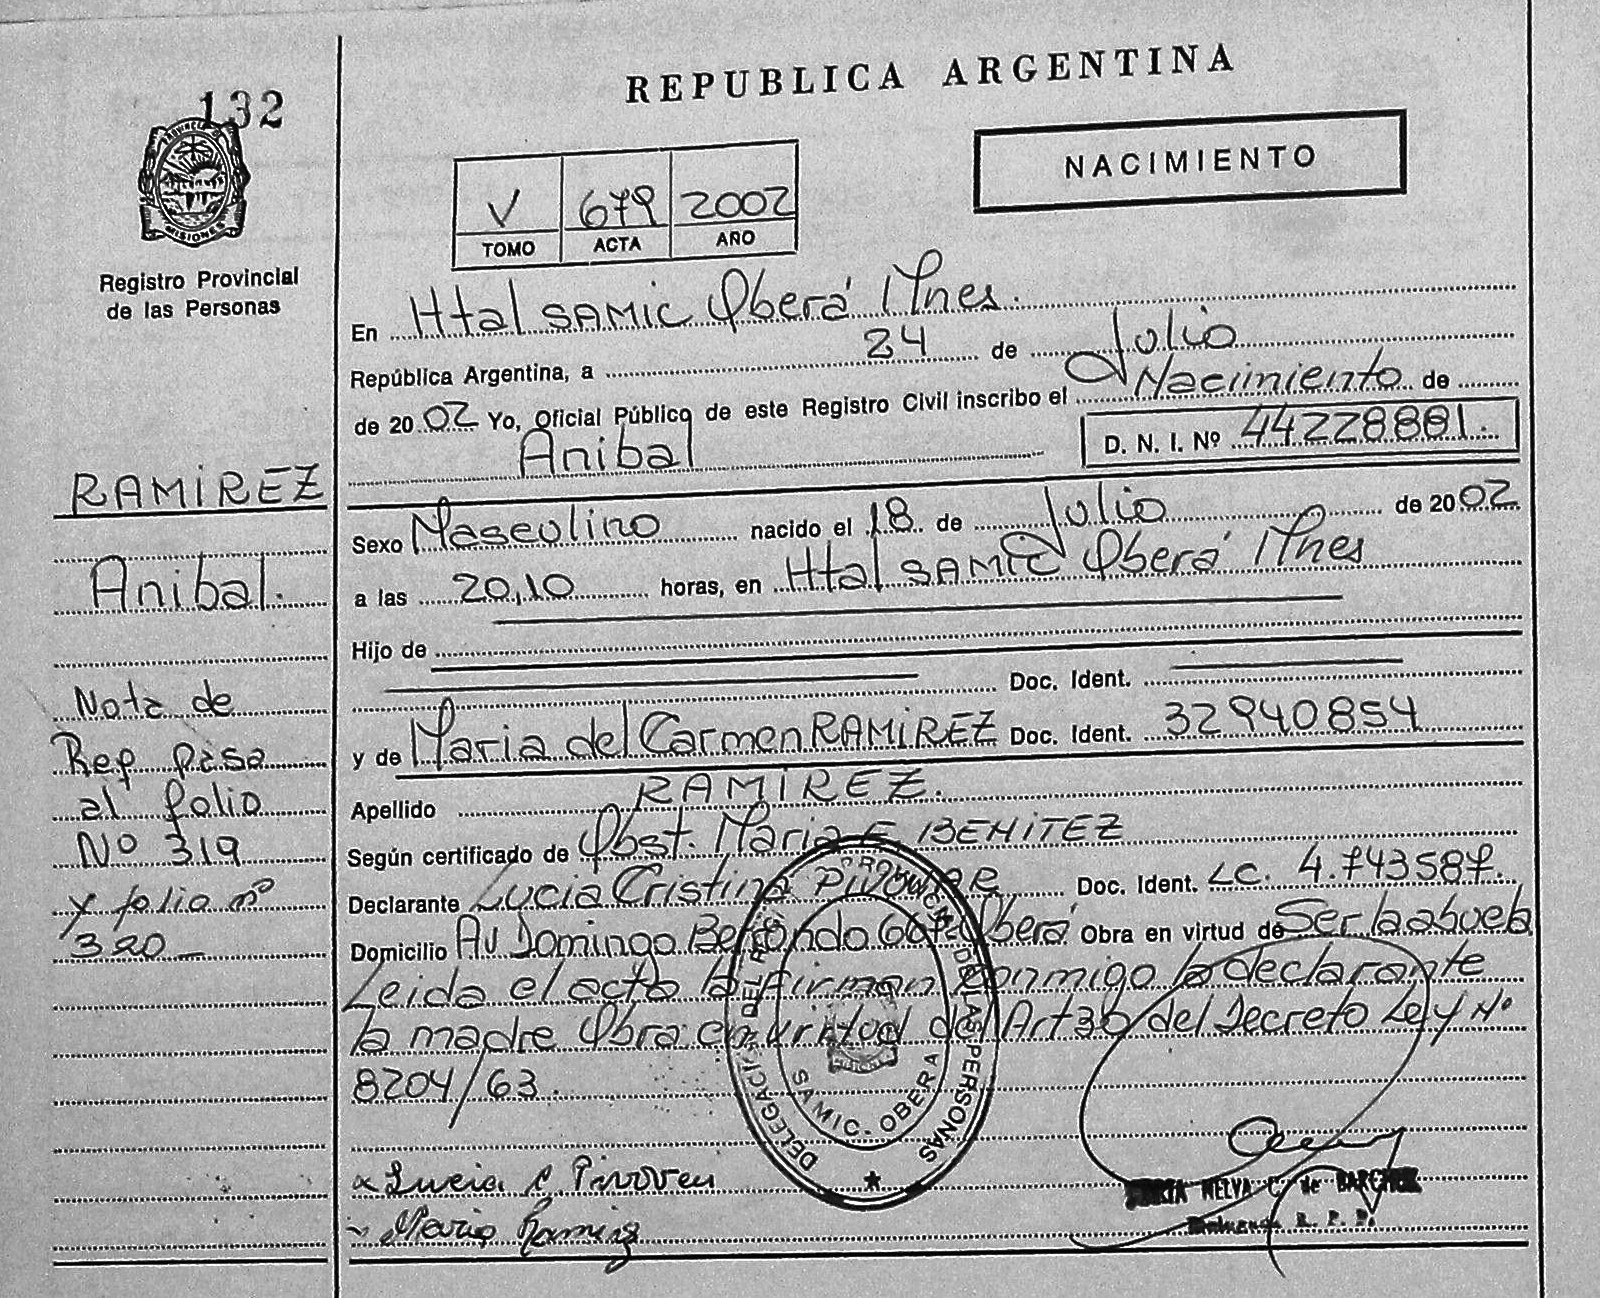 132
PROVINCIA DE
MISIONES
Registro Provincial
de las Personas
RAMIREZ
Anibal.
Nota de
Rep pasa
al folio
Nº 319
y folio nº
320 -
REPUBLICA ARGENTINA
NACIMIENTO
V 679 2002
TOMO ACTA AÑO
En Htal SAMIC Oberá Mnes.
República Argentina, a 24 de Julio
de 2002 Yo, Oficial Público de este Registro Civil inscribo el Nacimiento de
Anibal D. N. I. Nº 44228881.
Sexo Masculino nacido el 18 de Julio de 2002
a las 20,10 horas, en Htal SAMIC Oberá Mnes
Hijo de
Doc. Ident.
y de Maria del Carmen RAMIREZ Doc. Ident. 32940854
Apellido RAMIREZ.
Según certificado de Obst. Maria E. BENITEZ
Declarante Lucia Cristina Doc. Ident. LC. 4.743587.
Domicilio Av Domingo Oberá Obra en virtud de Ser la abuela
Leida el acta la firman conmigo la declarante
la madre Obra en virtud del Art 36 del Decreto Ley Nº
8204/63.
DELEGACION DEL REG. PROVINCIAL DE LAS PERSONAS
SAMIC - OBERA
Lucia C
Maria Ramirez
NELVA C. de
R. P. P.